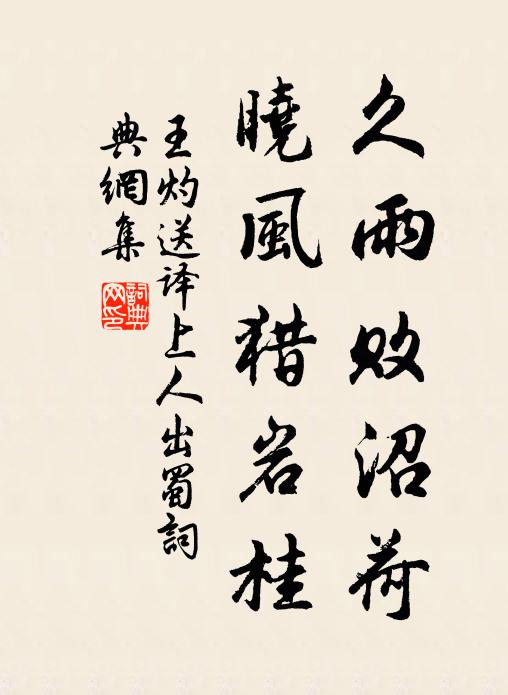 久雨败沼荷
曉風猎岩桂
王灼送译上人出蜀詞
典網集
詞典
网印